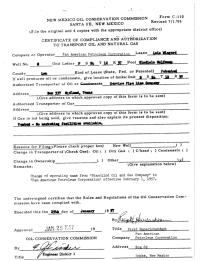 Form C-110
Revised 7/1/55
NEW MEXICO OIL CONSERVATION COMMISSION
SANTA FE, NEW MEXICO
(File the original and 4 copies with the appropriate district office)
CERTIFICATE OF COMPLIANCE AND AUTHORIZATION
TO TRANSPORT OIL AND NATURAL GAS
Company or Operator Pan American Petroleum Corporation Lease
Well No. Unit Letter S T R Pool
County Lea Kind of Lease (State, Fed. or Patented) Patented
If well produces oil or condensate, give location of tanks: Unit S T R
Authorized Transporter of Oil or Condensate Service Pipe Line Company
Address Midland, Texas
(Give address to which approved copy of this form is to be sent)
Authorized Transporter of Gas
Address
(Give address to which approved copy of this form is to be sent)
If Gas is not being sold, give reasons and also explain its present disposition:
Vented - No marketing facilities available.
Reasons for Filing: (Please check proper box) New Well ( )
Change in Transporter of (Check One): Oil ( ) Dry Gas ( ) C'head ( ) Condensate ( )
Change in Ownership ( ) Other
Remarks: (Give explanation below)
Change of operating name from "Stanolind Oil and Gas Company" to
"Pan American Petroleum Corporation" effective February 1, 1957.
The undersigned certifies that the Rules and Regulations of the Oil Conservation Commission have been complied with.
Executed this the day of January 19 57
By
Approved JAN 25 1957 19
Title Field Superintendent
OIL CONSERVATION COMMISSION
Pan American
Company Petroleum Corporation
By
Address Box 68
Title Engineer District 1
Hobbs, New Mexico